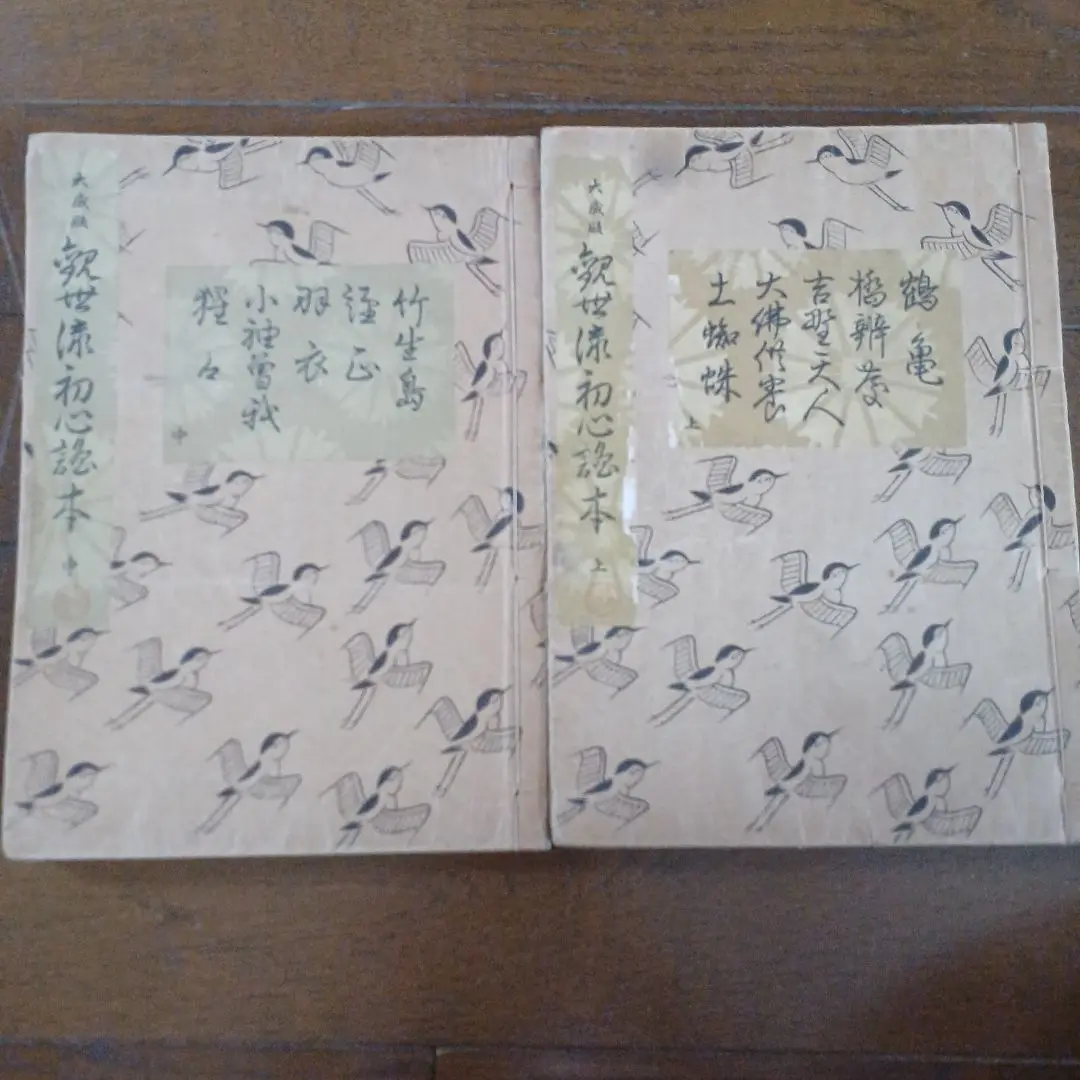 大成版 觀世流初心謡本 上
鶴亀
橋辨慶
吉野天人
大佛供養
土蜘蛛
上
大成版 觀世流初心謡本 中
竹生島
経正
羽衣
小袖曽我
猩々
中